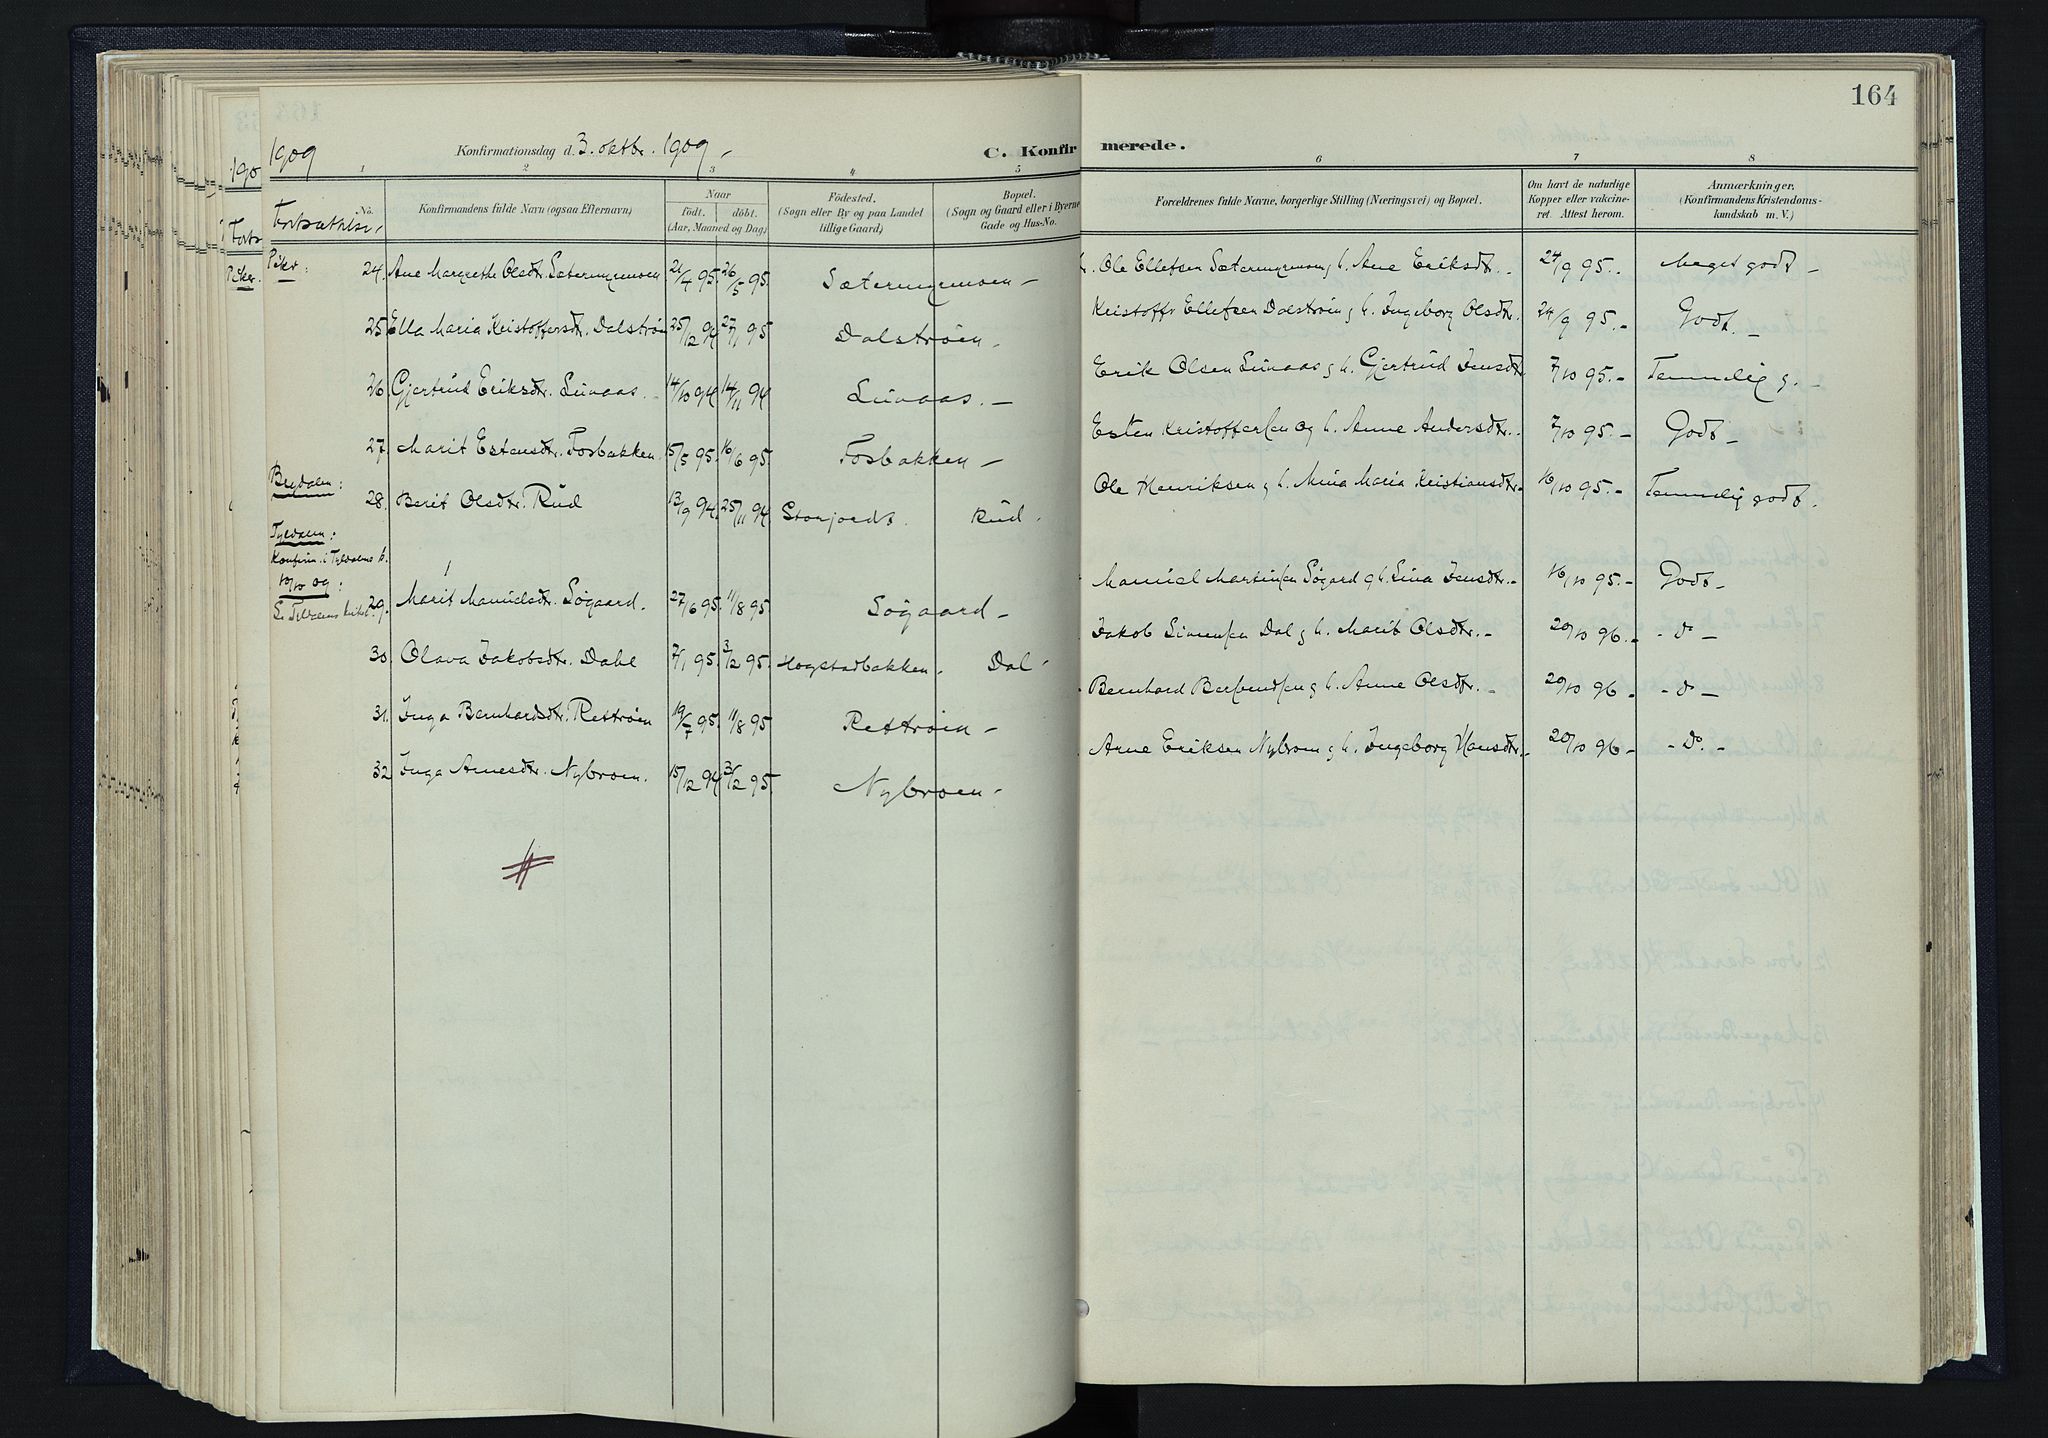 164
1909 Konfirmationsdag d. 3. oktbr. 1909. C. Konfirmerede.
1 2 3 4 5 6 7 8
No. Konfirmandens fulde Navn (ogsaa Efternavn) Naar födt. döbt. (Aar, Maaned og Dag) Födested. (Sogn eller By og paa Landet tillige Gaard) Bopæl. (Sogn og Gaard eller i Byerne Gade og Hus-No. Forældrenes fulde Navne, borgerlige Stilling (Næringsvei) og Bopæl. Om havt de naturlige Kopper eller vakcineret. Attest herom. Anmærkninger. (Konfirmandens Kristendomskundskab m. V.)
Fortsættelse.
Piker:
24. Ane Margrethe Olsdtr. Sæterngmoen 21/4 95. 26/5 95. Sæterngmoen – Ole Ellefsen Sæterngmoen g h. Ane Eriksdtr. 24/9 95. Meget godt –
25 Ella Maria Kristoffersdtr. Dalstrøen 25/12 94 27/1 95 Dalstrøen. Kristoffr Ellefsen Dalstrøen g h. Ingeborg Olsdtr. 24/9 95. – Godt. –
26. Gjertrud Eriksdtr. Luvaas. 14/10 94 14/11 94 Luvaas. – Erik Olsen Luvaas g h. Gjertrud Jensdtr. 7/10 95. – Temmelig g.
27. Marit Estensdtr. Fosbakken 15/5 95. 16/6 95. Fosbakken – Esten Kristoffersen og h. Anne Andersdtr. 7/10 95. – Godt –
28. Berit Olsdtr. Rud 13/9 94. 25/11 94 Rud. Ole Henriksen g h. Mina Maria Kristiansdtr. 16/10 95. – Temmelig godt.
Tyldalen:
Konfirm. i Tyldalens k.
10/10 09:
29. Marit Manuelsdtr. Søgaard. 27/6 95. 11/8 95 Søgaard – Manuel Martinsen Søgard g h. Lina Jensdtr. – 16/10 95. – Godt –
30. Olava Jakobsdtr. Dahl 7/1 95. 3/2 95. Hogstadbakken. Dal – Jakob Simensen Dal g h. Marit Olsdtr. – 20/10 96. – - do –
31. Inga Bernhardsdtr. Rettrøen 19/7 95. 11/8 95 Rettrøen – Bernhard Bersvendsen g h. Anne Olsdtr. – 20/10 96 – - do –
32 Inga Arnesdtr. Nybroen. 15/12 94 3/2 95 Nybroen – Arne Eriksen Nybroen g h. Ingeborg Hansdtr. – 20/10 96 – - Do. –